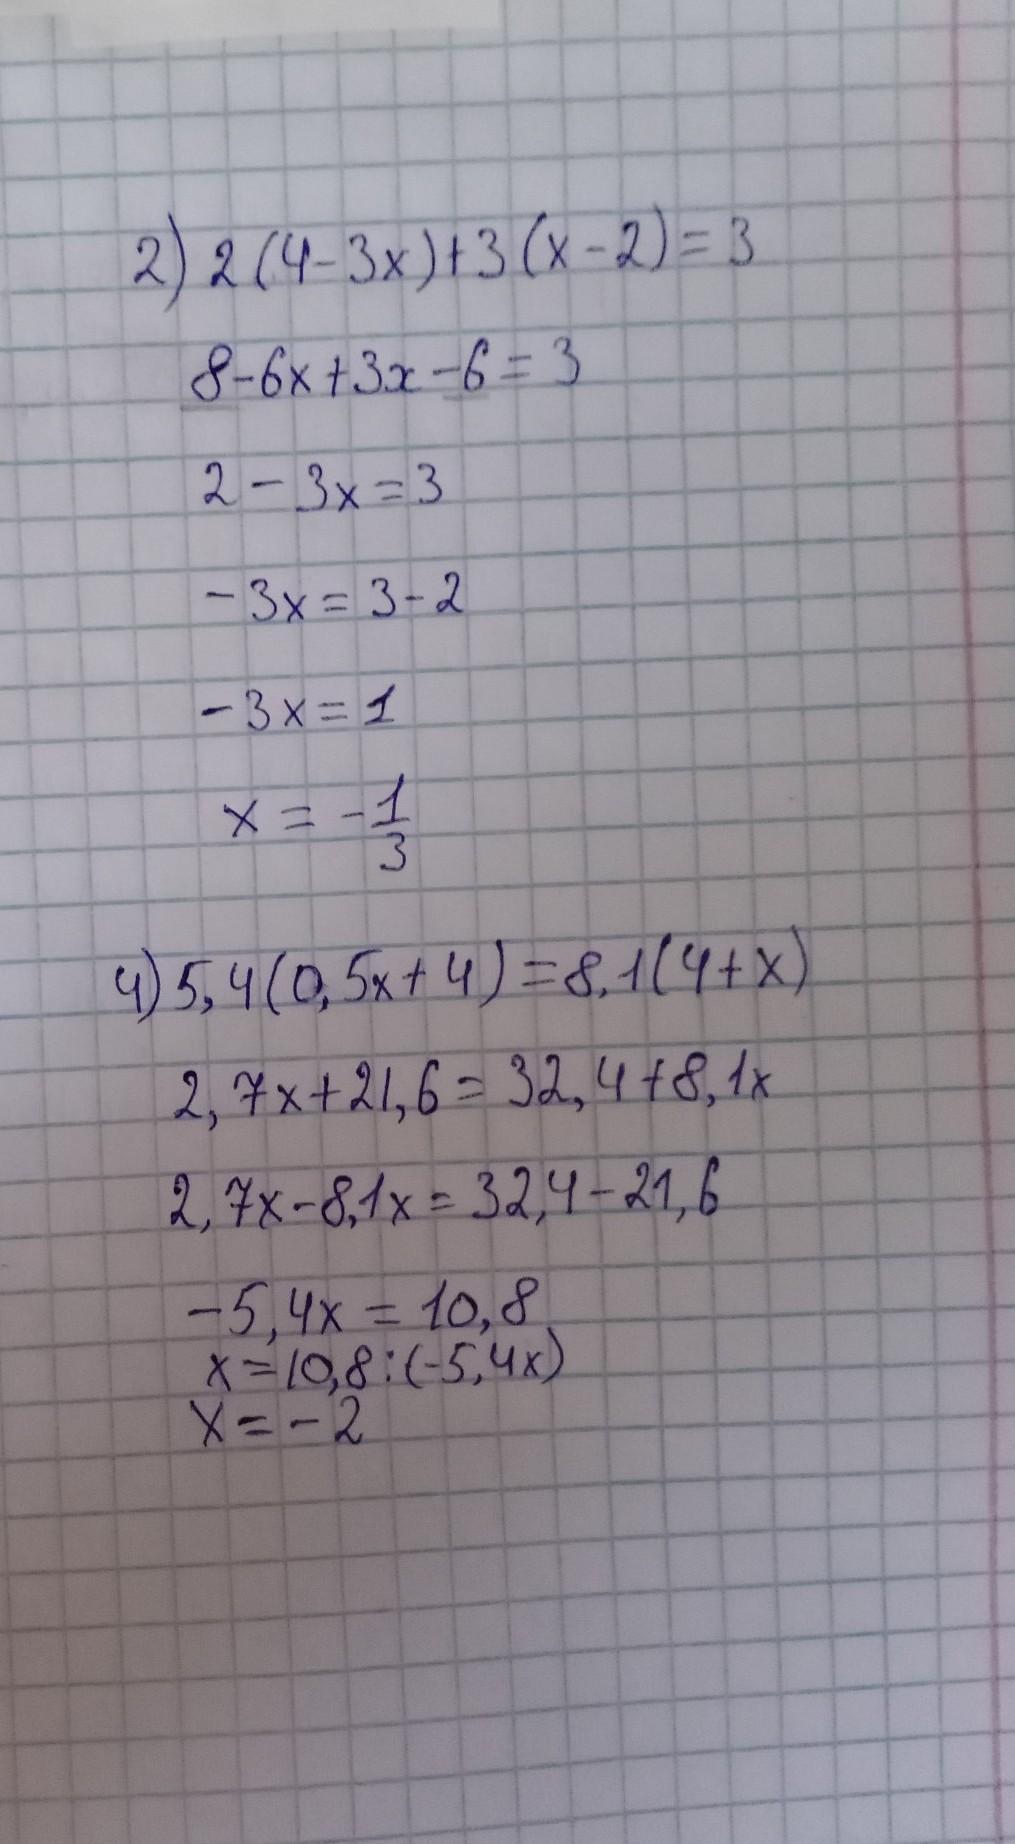 2) 2(4-3x)+3(x-2)=3
8-6x+3x-6=3
2-3x=3
-3x=3-2
-3x=1
x=-1/3
4) 5,4(0,5x+4)=8,1(4+x)
2,7x+21,6=32,4+8,1x
2,7x-8,1x=32,4-21,6
-5,4x=10,8
x=10,8:(-5,4x)
x=-2